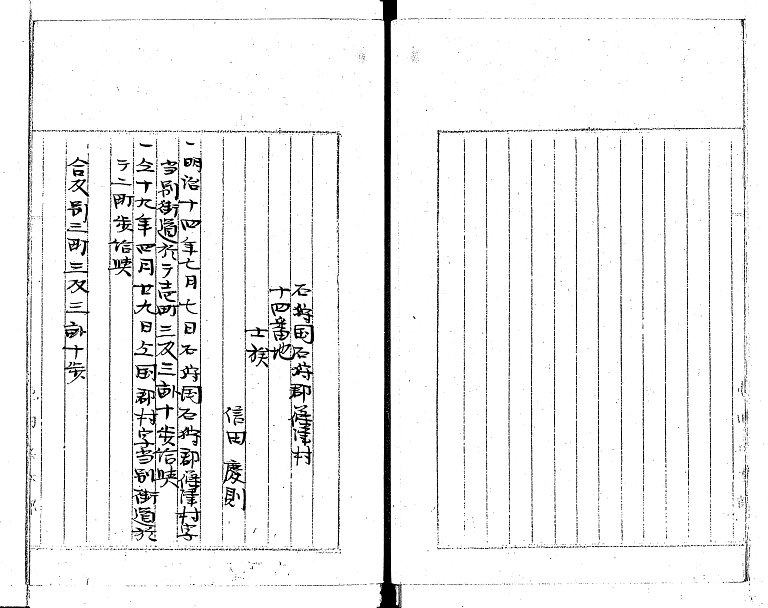 石狩国石狩郡篠津村
十四番地
士族
信田慶則
一明治十四年七月七日石狩国石狩郡篠津村字
当別街道於テ壱町三反三畝十歩給与
一仝十九年四月廿九日仝国郡村字当別街道於
テ二町歩給与
合反別三町三反三畝十歩